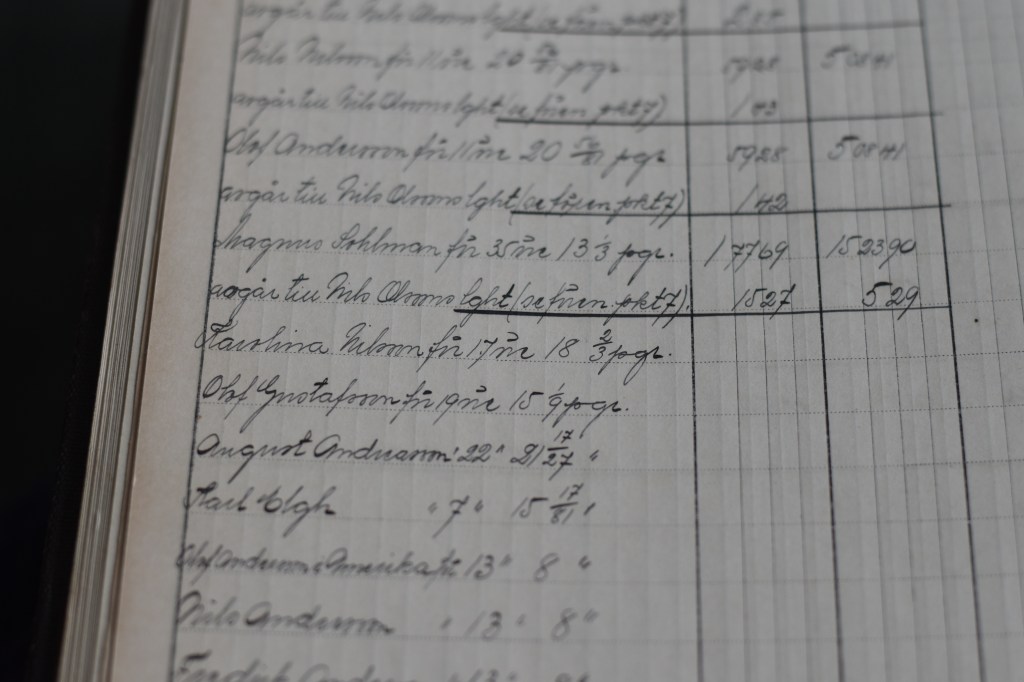 avgår till Nils Olssons lght (se fören. pkt 7)
Nils Nilsson för 11 öre 20 pgr 5928 50841
avgår till Nils Olssons lght (se fören. pkt 7)
Olof Andersson för 11 öre 20 pgr 5928 50841
avgår till Nils Olssons lght (se fören. pkt 7) 142
Magnus Sohlman för 35 öre 13 1/3 pgr. 17769 152390
avgår till Nils Olssons lght (se fören. pkt 7). 1527 529
Karolina Nilsson för 17 öre 18 2/3 pgr.
Olof Gustafsson för 19 öre 15 1/9 pgr.
August Andersson " 22 " 21 17/27 "
Karl Elgh " 7 " 15 17/81 "
Olof Andersson i Amerika för 13 " 8 "
Nils Andersson " 13 " 8 "